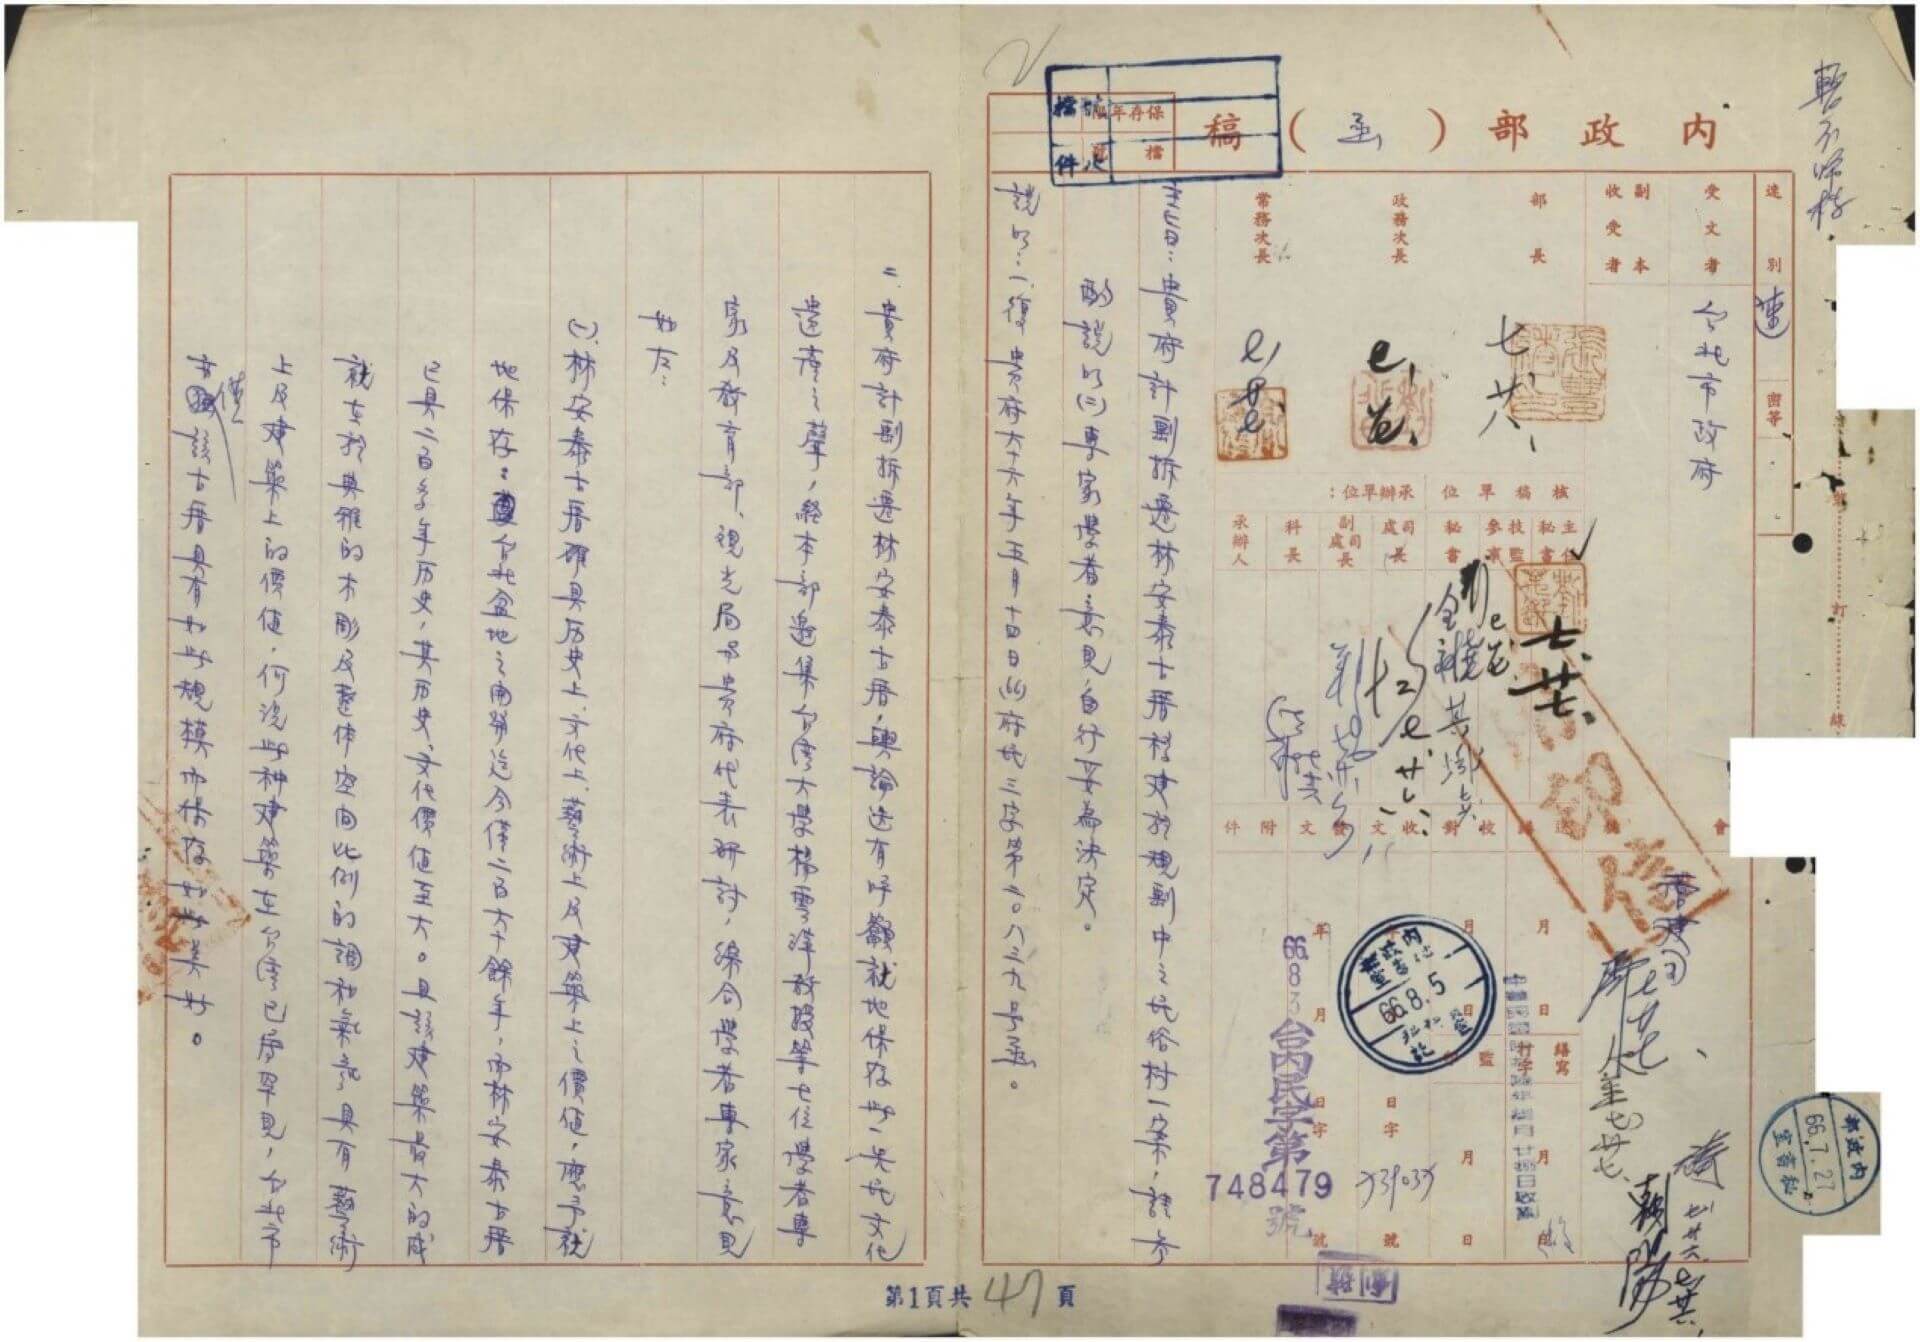 內政部（函）稿
保存年限
檔號
檔號
件次
暫不歸檔
速別
速
密等
受文者
台北市政府
副本收受者
部長
政務次長
常務次長
七廿八、
核稿單位
承辦單位：
主任秘書
技監參事
秘書
司處長
副司處長
科長
承辦人
七、廿七、
會
歸送
校對
收文
發文
附件
裝
訂
線
會建司
繕寫
打字
監
年
月
日
字
號
66.8.3
台內民字第
748479
號
739037
內政部秘書室
66.8.5
登記
內政部
66.7.27
秘書室
主旨：貴府計劃拆遷林安泰古厝移建於規劃中之民俗村一案，請參
酌說明(二)專家學者意見，自行妥為決定。
說明：一、復貴府六十六年五月十四日(66)府民三字第二〇八三九號函。
二、貴府計劃拆遷林安泰古厝，輿論迭有呼籲就地保存此一先民文化
遺產之聲，經本部邀集台灣大學楊雲萍教授等七位學者專
家及教育部、觀光局與貴府代表研討，綜合學者專家意見
如左：
(一)、林安泰古厝確具历史上、文化上、藝術上及建築上之價值，應予就
地保存：台北盆地之開發迄今僅二百六十餘年，而林安泰古厝
已具二百多年历史，其历史、文化價值至大。且該建築最大的成
就在於典雅的木彫及整体空间比例的調和氣氛具有藝術
上及建築上的價值，何況此种建築在台灣已屬罕見，台北市
亦僅該古厝具有如此規模而保存如此美好。
第1頁共47頁